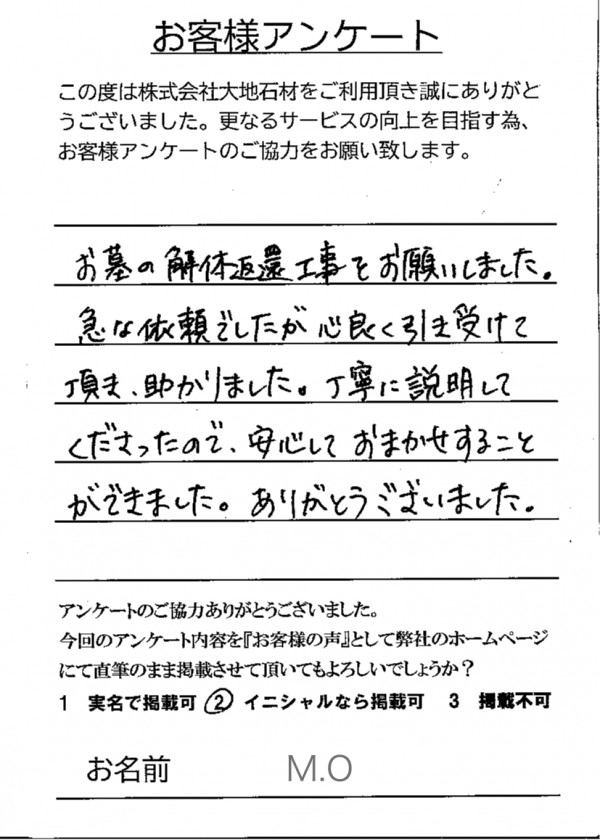 お客様アンケート
この度は株式会社大地石材をご利用頂き誠にありがと
うございました。更なるサービスの向上を目指す為、
お客様アンケートのご協力をお願い致します。
お墓の解体返還工事をお願いしました。
急な依頼でしたが心良く引き受けて
頂き、助かりました。丁寧に説明して
くださったので、安心しておまかせすること
ができました。ありがとうございました。
アンケートのご協力ありがとうございました。
今回のアンケート内容を『お客様の声』として弊社のホームページ
にて直筆のまま掲載させて頂いてもよろしいでしょうか？
1 実名で掲載可 ② イニシャルなら掲載可 3 掲載不可
お名前 M.O